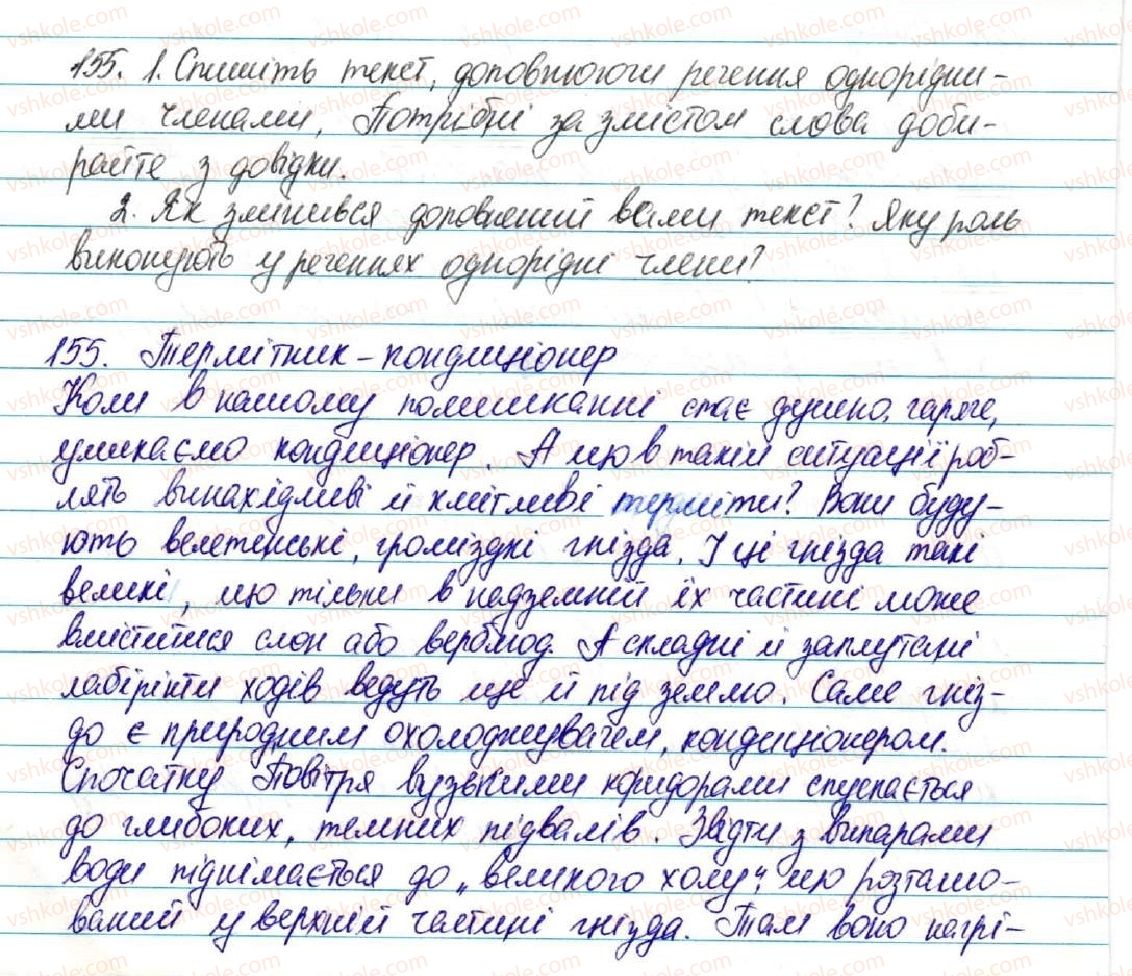 155. 1. Спишіть текст, доповнюючи речення однорідни-
ми членами, Потрібні за змістом слова доби-
райте з довідки.
2. Як змінився доповнений вами текст? Яку роль
виконують у реченнях однорідні члени?
155. Термітник - кондиціонер
Коли в нашому помешканні стає душно, гаряче,
умикаємо кондиціонер. А що в такій ситуації роб-
лять винахідливі й кмітливі терміти? Вони буду-
ють велетенські, громіздкі гнізда. І ці гнізда такі
великі, що тільки в надземній їх частині може
вміститися слон або верблюд. А складні й заплутані
лабірінти ходів ведуть ще й під землю. Саме гніз-
до є природним охолоджувачем, кондиціонером.
Спочатку Повітря вузькими коридорами спускається
до глибоких, темних підвалів. Звідти з випарами
води піднімається до „великого холу", що розташо-
ваний у верхній частині гнізда. Там воно нагрі-